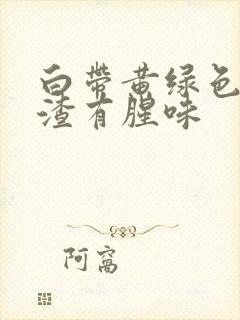 白带黄绿色
渣有腥味
阿窝